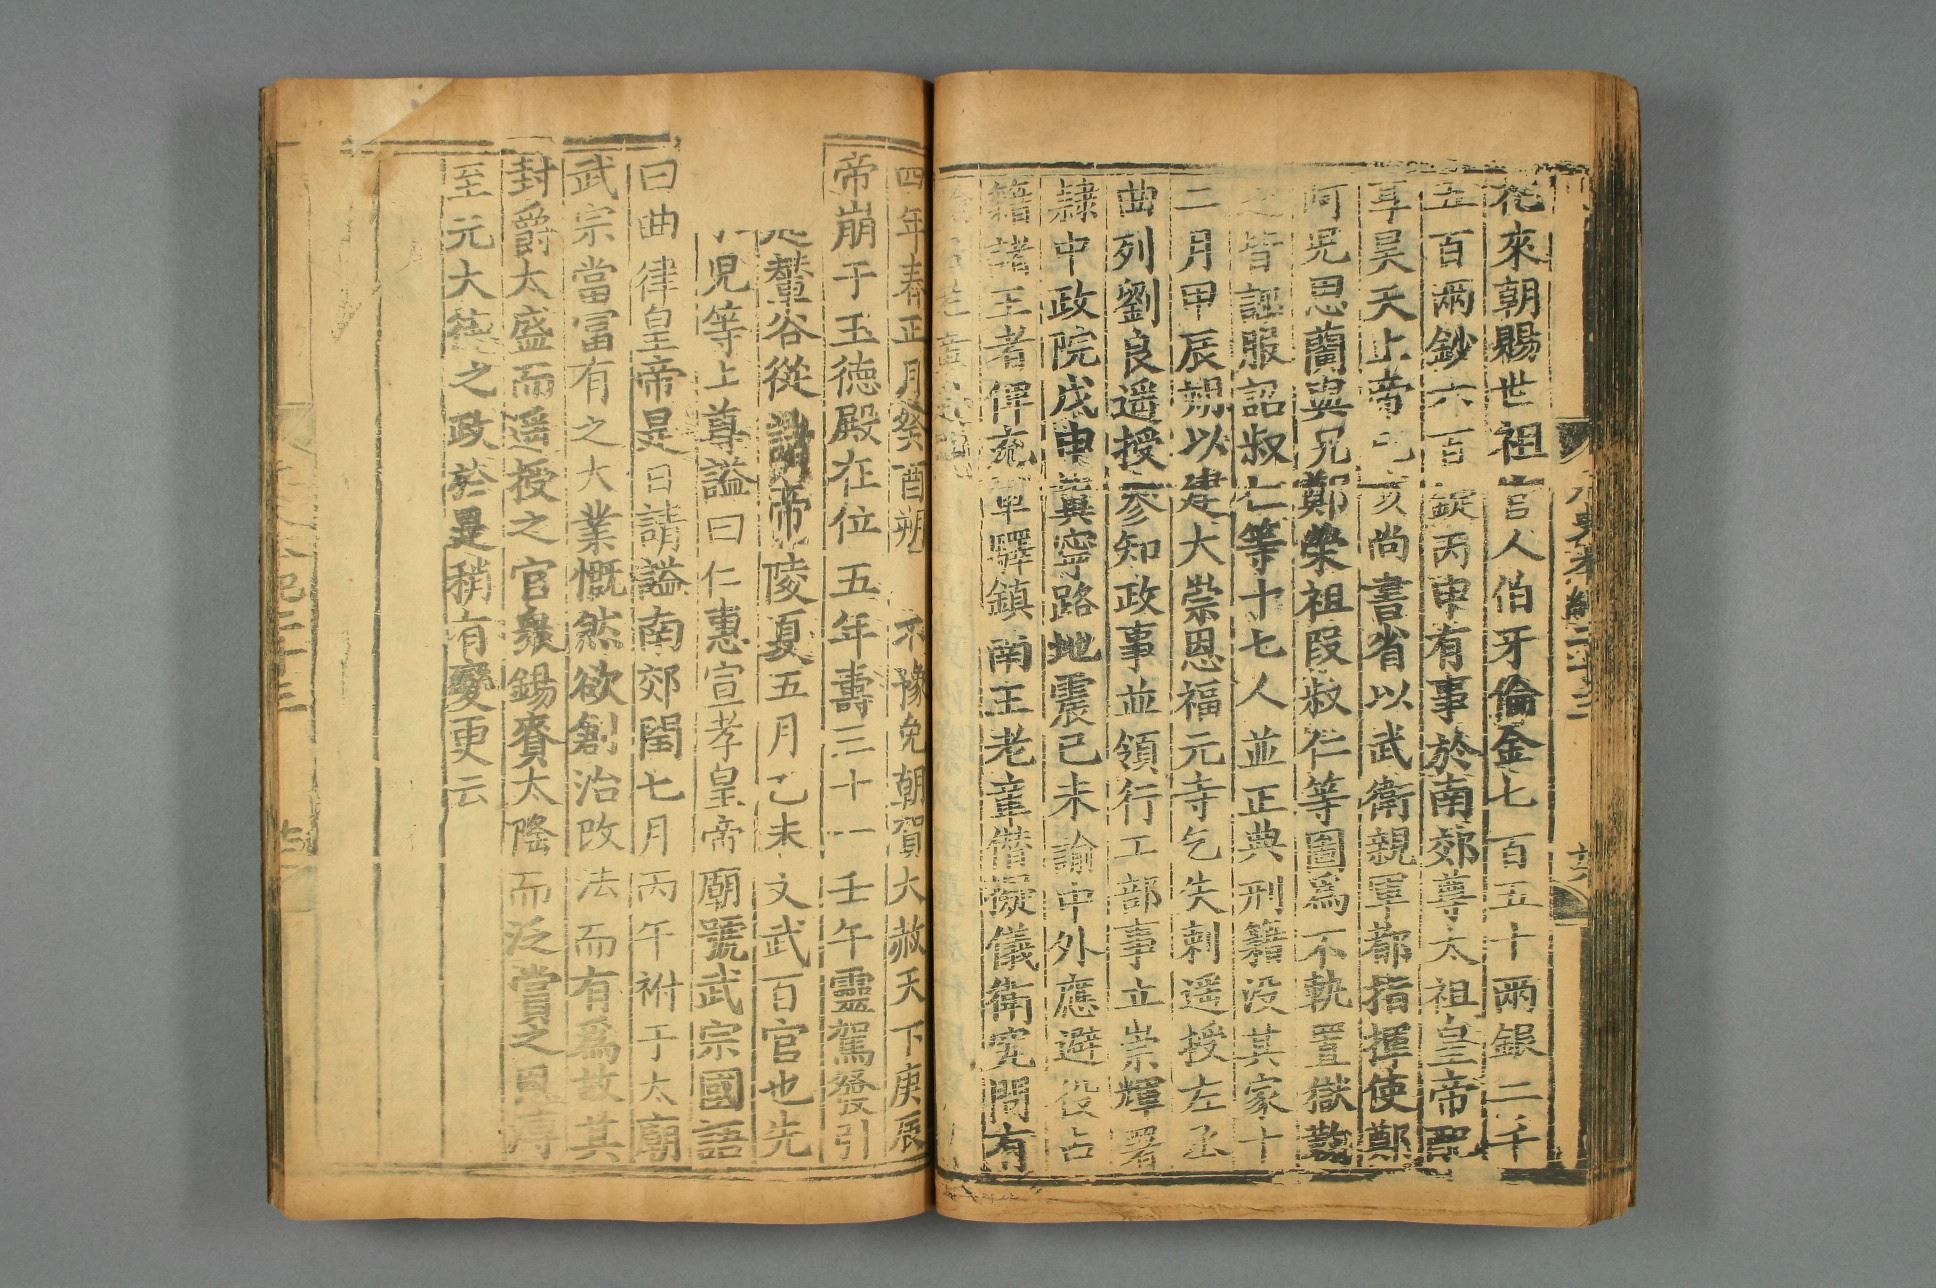 花來朝賜世祖宮人伯牙倫金七百五十兩銀二千
五百兩鈔六百錠丙申有事於南郊尊太祖皇帝配
享昊天上帝乙亥尚書省以武衛親軍都指揮使鄭
阿児思蘭與兄鄭榮祖段叔仁等圖爲不軌置獄鞫
之皆誣服詔叔仁等十七人並正典刑籍没其家十
二月甲辰朔以建大崇恩福元寺乞失剌遥授左丞
曲列劉良遥授參知政事並領行工部事立崇輝署
隷中政院戊申冀寧路地震己未諭中外應避役占
籍諸王者俾充軍驛鎮南王老章僣擬儀衛究問有
老章
本紀卷二十三
十六
四年春正月癸酉朔不豫免朝賀大赦天下庚辰
帝崩于玉德殿在位五年壽三十一壬午靈駕發引
輦谷從諸帝陵夏五月乙未文武百官也先
児等上尊謚曰仁惠宣孝皇帝廟號武宗國語
曰曲律皇帝是日請謚南郊閏七月丙午祔于太廟
武宗當富有之大業慨然欲創治改法而有爲故其
封爵太盛而遥授之官衆錫賚太隆而泛賞之恩溥
至元大德之政於是稍有變更云
紀二十三